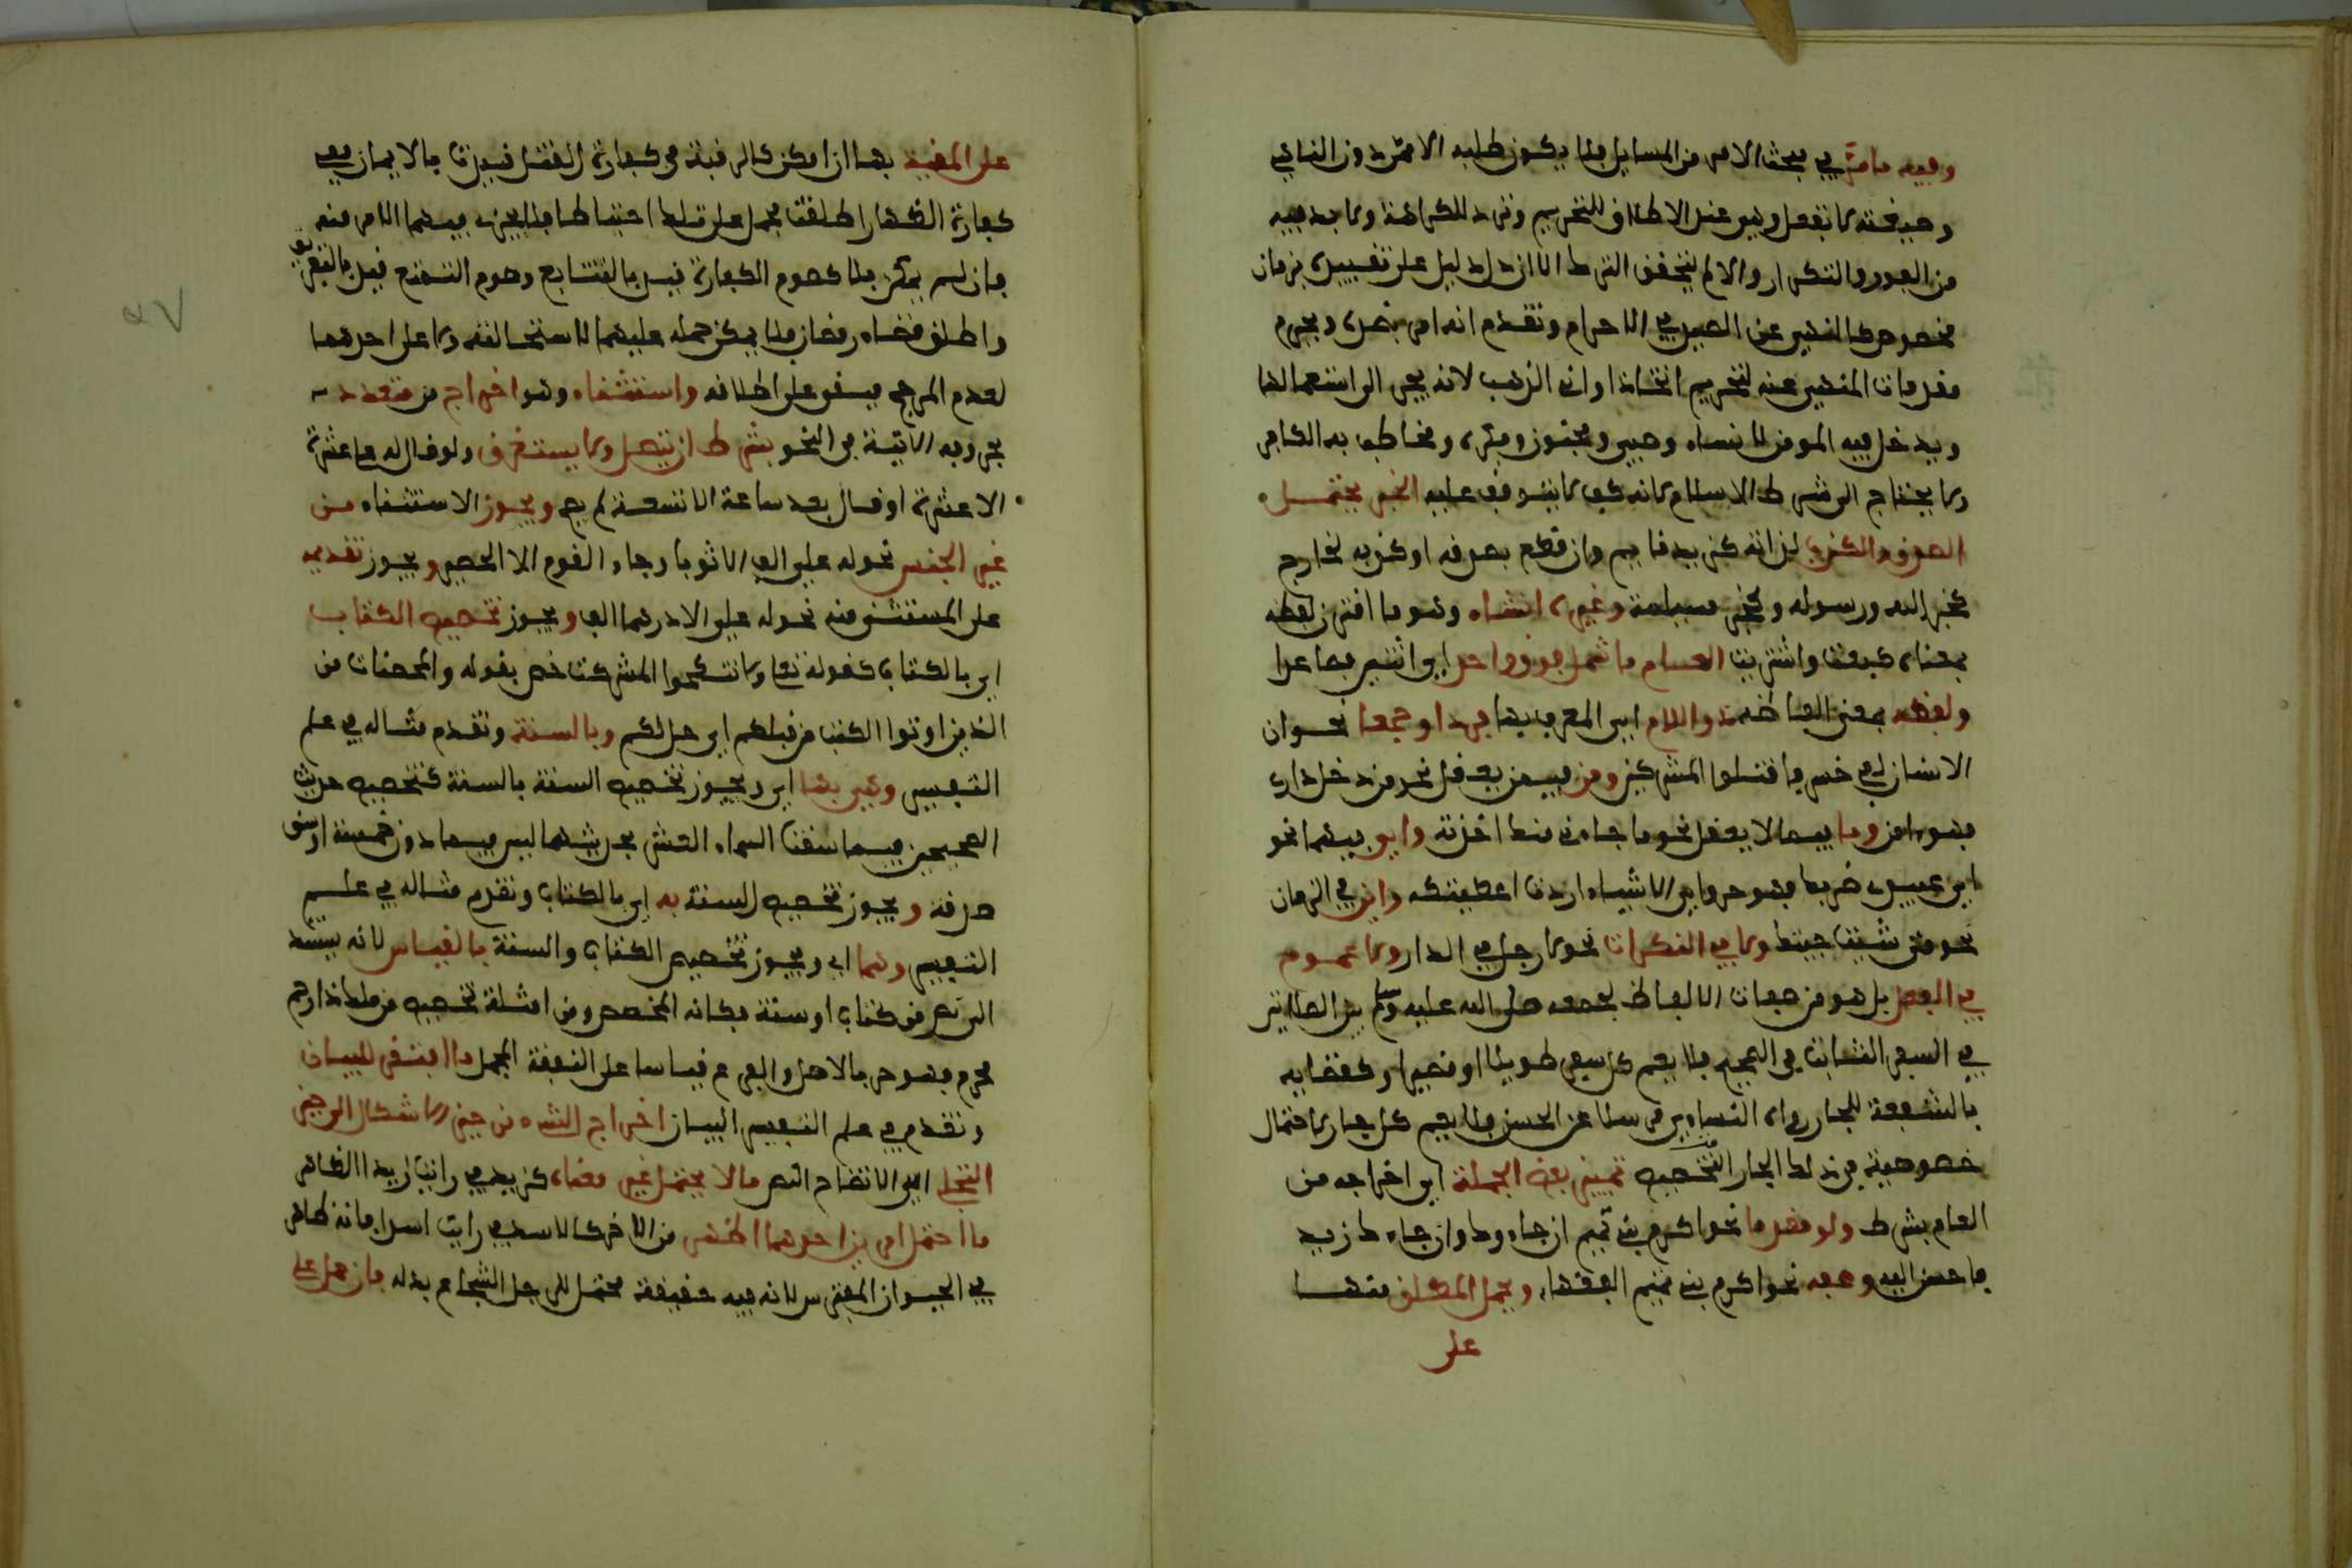 وفيه ما مر في مبحث الامر من المسايل فلا يكون طلبه الا ممن دون الناهي
وصيغته لا تفعل وهي عند الاطلاق للتحريم وترد للكراهة ولا بد فيه
من الفور والتكرار والا لم يتحقق الترك الا ان دل دليل على تقييده بزمان
مخصوص كالنهي عن الصيد في الاحرام وتقدم انه امر بضده ويحرم
مقدمات المنهي عنه لتحريم اتخاذ اواني الذهب لانه يجر الى استعمالها
ويدخل فيه المومن لا نساه وصبي ومجنون ومكره ومخاطب به الكافر
ولا يحتاج الى شرط الاسلام لانه كف لا يتوقف عليه الخبر يحتمل
الصدق والكذب لذاته كزيد قايم وان قطع بصدقه او كذبه لخارج
كخبر الله ورسوله وكخبر مسيلمة وغيره انشاء وهو ما اقترن لفظه
بمعناه كبعت واشتريت العام ما شمل فوق واحد اي اثنين فصاعدا
ولفظه بمعنى الفاظه ذو اللام اي المعرف بها فردا او جمعا نحو ان
الانسان لفي خسر فاقتلوا المشركين ومن فيمن يعقل نحو من دخل داري
فهو امن وما فيما لا يعقل نحو ما جاءني منك اخذته واي فيهما نحو
اي عبيدي ضربك فهو حر واي الاشياء اردت اعطيتكه واين في الزمان
نحو متى شئت جيتك ولا في النكرات نحو لا رجل في الدار ولا عموم
في الفعل بل هو من صفات الالفاظ كجمعه صلى الله عليه وسلم بين الصلاتين
في السفر الثابت في الصحيح فلا يعم كل سفر طويلا او قصيرا وكقضايه
بالشفعة للجار رواه النساءي مرسلا عن الحسن فلا يعم كل جار لاحتمال
خصوصية في ذلك الجار التخصيص تمييز بعض الجملة اي اخراجه من
العام بشرط ولو مقدما نحو اكرم بني تميم ان جاءوك وان جاءك زيد
فاحسن اليه وصفة نحو اكرم بني تميم الفقهاء ويحمل المطلق منهما
على
على المقيد بها ان امكن كالرقبة في كفارة القتل قيدت بالايمان وفي
كفارة الظهار اطلقت فحمل على تلك احتياطا فلا يجزي فيهما الا مومنة
فان لم يمكن فلا كصوم الكفارة قيد بالتتابع وصوم التمتع قيد بالتفريق
واطلق قضاء رمضان فلا يمكن حمله عليهما لاستحالته ولا على احدهما
لعدم المرجح فيبقى على اطلاقه واستثناء وهو اخراج من متعدد
بحروفه الاتية في النحو بشرط ان يتصل ولا يستغرق ولو قال له علي عشرة
الا عشرة او قال بعد ساعة الا تسعة لم يصح ويجوز الاستثناء من
غير الجنس نحو له علي الف الا ثوبا وجاء القوم الا الحمير ويجوز تقديمه
على المستثنى منه نحو له علي الا درهما الف ويجوز تخصيص الكتاب
اي بالكتاب كقوله تعالى ولا تنكحوا المشركات خص بقوله والمحصنات من
الذين اوتوا الكتاب من قبلكم اي حل لكم وبالسنة وتقدم مثاله في علم
التفسير وهي بها اي ويجوز تخصيص السنة بالسنة كتخصيص حديث
الصحيحين فيما سقت السماء العشر بحديثهما ليس فيما دون خمسة اوسق
صدقة ويجوز تخصيص السنة به اي بالكتاب وتقدم مثاله في علم
التفسير وهما اي ويجوز تخصيص الكتاب والسنة بالقياس لانه يستند
الى نص من كتاب او سنة فكانه المخصص ومن امثلة تخصيص من ملك ذا رحم
محرم فهو حر بالاصل والفرع قياسا على النفقة المجمل ما افتقر للبيان
وتقدم في علم التفسير البيان اخراج الشيء من حيز الاشكال الى حيز
التجلي اي الاتضاح النص ما لا يحتمل غير معناه كزيد في رايت زيدا الظاهر
ما احتمل امرين احدهما اظهر من الاخر كالاسد في رايت اسدا فانه ظاهر
في الحيوان المفترس لانه فيه حقيقة محتمل للرجل الشجاع بدله فان حمل على